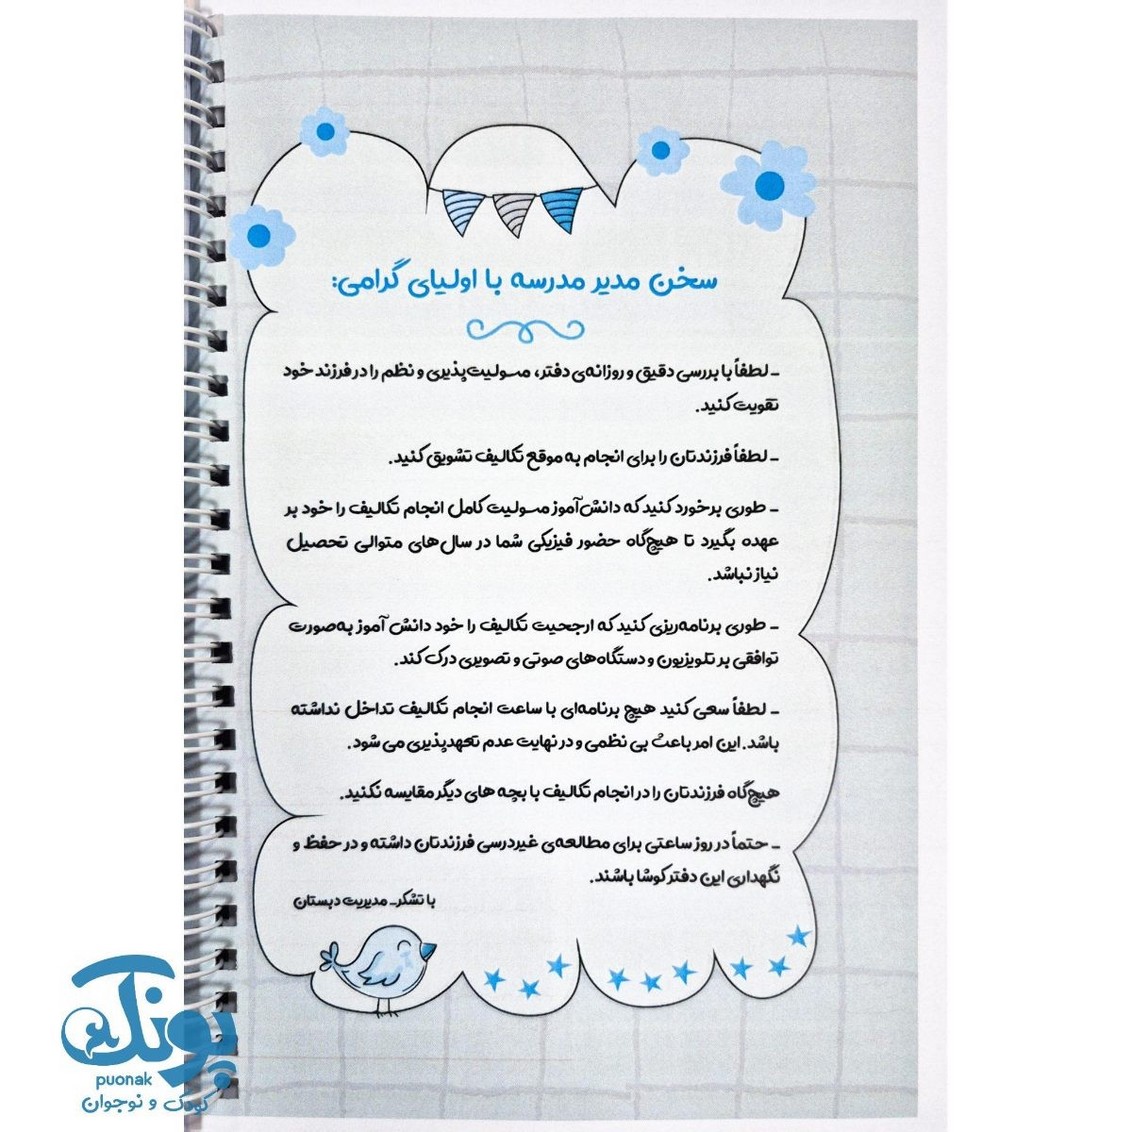 سخن مدیر مدرسه با اولیای گرامی:
ـ لطفاً با بررسی دقیق و روزانه‌ی دفتر، مسولیت‌پذیری و نظم را در فرزند خود
تقویت کنید.
ـ لطفاً فرزندتان را برای انجام به موقع تکالیف تشویق کنید.
ـ طوری برخورد کنید که دانش‌آموز مسولیت کامل انجام تکالیف را خود بر
عهده بگیرد تا هیچ‌گاه حضور فیزیکی شما در سال‌های متوالی تحصیل
نیاز نباشد.
ـ طوری برنامه‌ریزی کنید که ارجحیت تکالیف را خود دانش آموز به‌صورت
توافقی بر تلویزیون و دستگاه‌های صوتی و تصویری درک کند.
ـ لطفاً سعی کنید هیچ برنامه‌ای با ساعت انجام تکالیف تداخل نداشته
باشد. این امر باعث بی نظمی و در نهایت عدم تعهدپذیری می شود.
هیچ‌گاه فرزندتان را در انجام تکالیف با بچه های دیگر مقایسه نکنید.
ـ حتماً در روز ساعتی برای مطالعه‌ی غیردرسی فرزندتان داشته و در حفظ و
نگهداری این دفتر کوشا باشند.
با تشکر ـ مدیریت دبستان
پونک
puonak
کودک و نوجوان